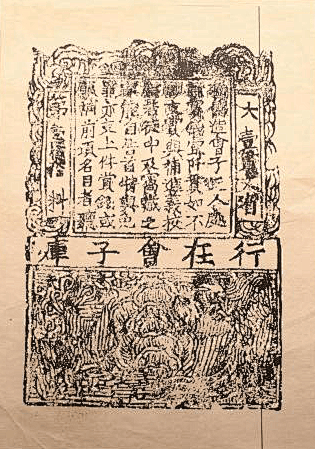 大壹貫文省
造會子犯人處
賞錢壹阡貫如不
願支賞與補進義校
尉若徒中及窩藏之
家能自告首特與免
罪亦支上件賞錢或
願補前項名目者聽
第料
行在會子庫